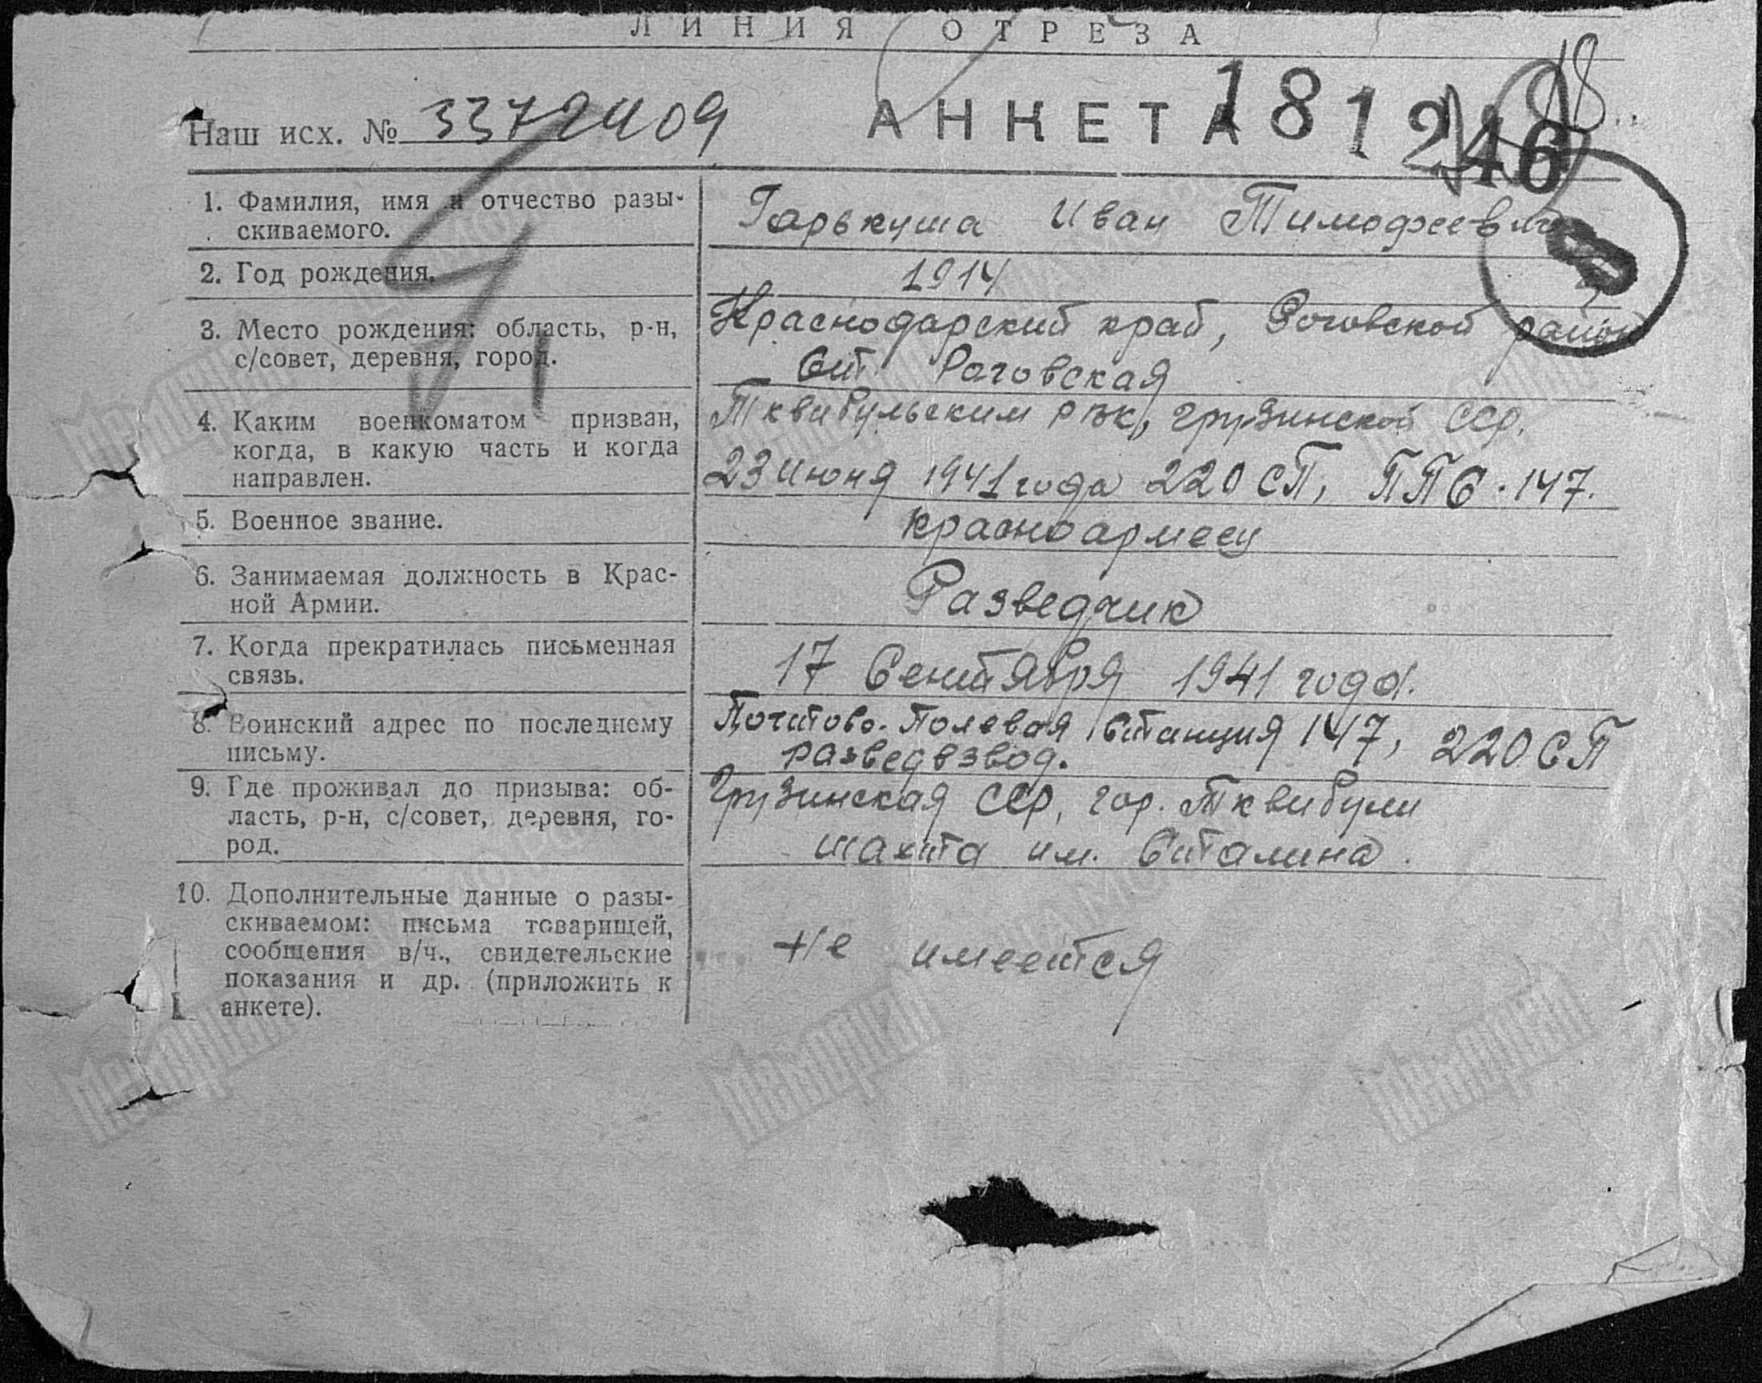 ЛИНИЯ ОТРЕЗА
Наш исх. № 3372409 АНКЕТА 181246
1. Фамилия, имя и отчество разы-
скиваемого.
Гарькуша Иван Тимофеевич
2. Год рождения.
1914
3. Место рождения: область, р-н,
с/совет, деревня, город.
Краснодарский край, Роговской район
Ст Роговская
4. Каким военкоматом призван,
когда, в какую часть и когда
направлен.
Тквибульским рвк, грузинской ССР.
23 июня 1941 года 220 СП, ППС. 147.
5. Военное звание.
красноармеец
6. Занимаемая должность в Крас-
ной Армии.
Разведчик
7. Когда прекратилась письменная
связь.
17 Сентября 1941 года.
8. Воинский адрес по последнему
письму.
Почтово. Полевая Станция 147, 220 СП
разведвзвод.
9. Где проживал до призыва: об-
ласть, р-н, с/совет, деревня, го-
род.
Грузинская ССР, гор. Тквибули
шахта им. Сталина.
10. Дополнительные данные о разы-
скиваемом: письма товарищей,
сообщения в/ч., свидетельские
показания и др. (приложить к
анкете).
Не имеется
Мемориал
Мемориал
Мемориал